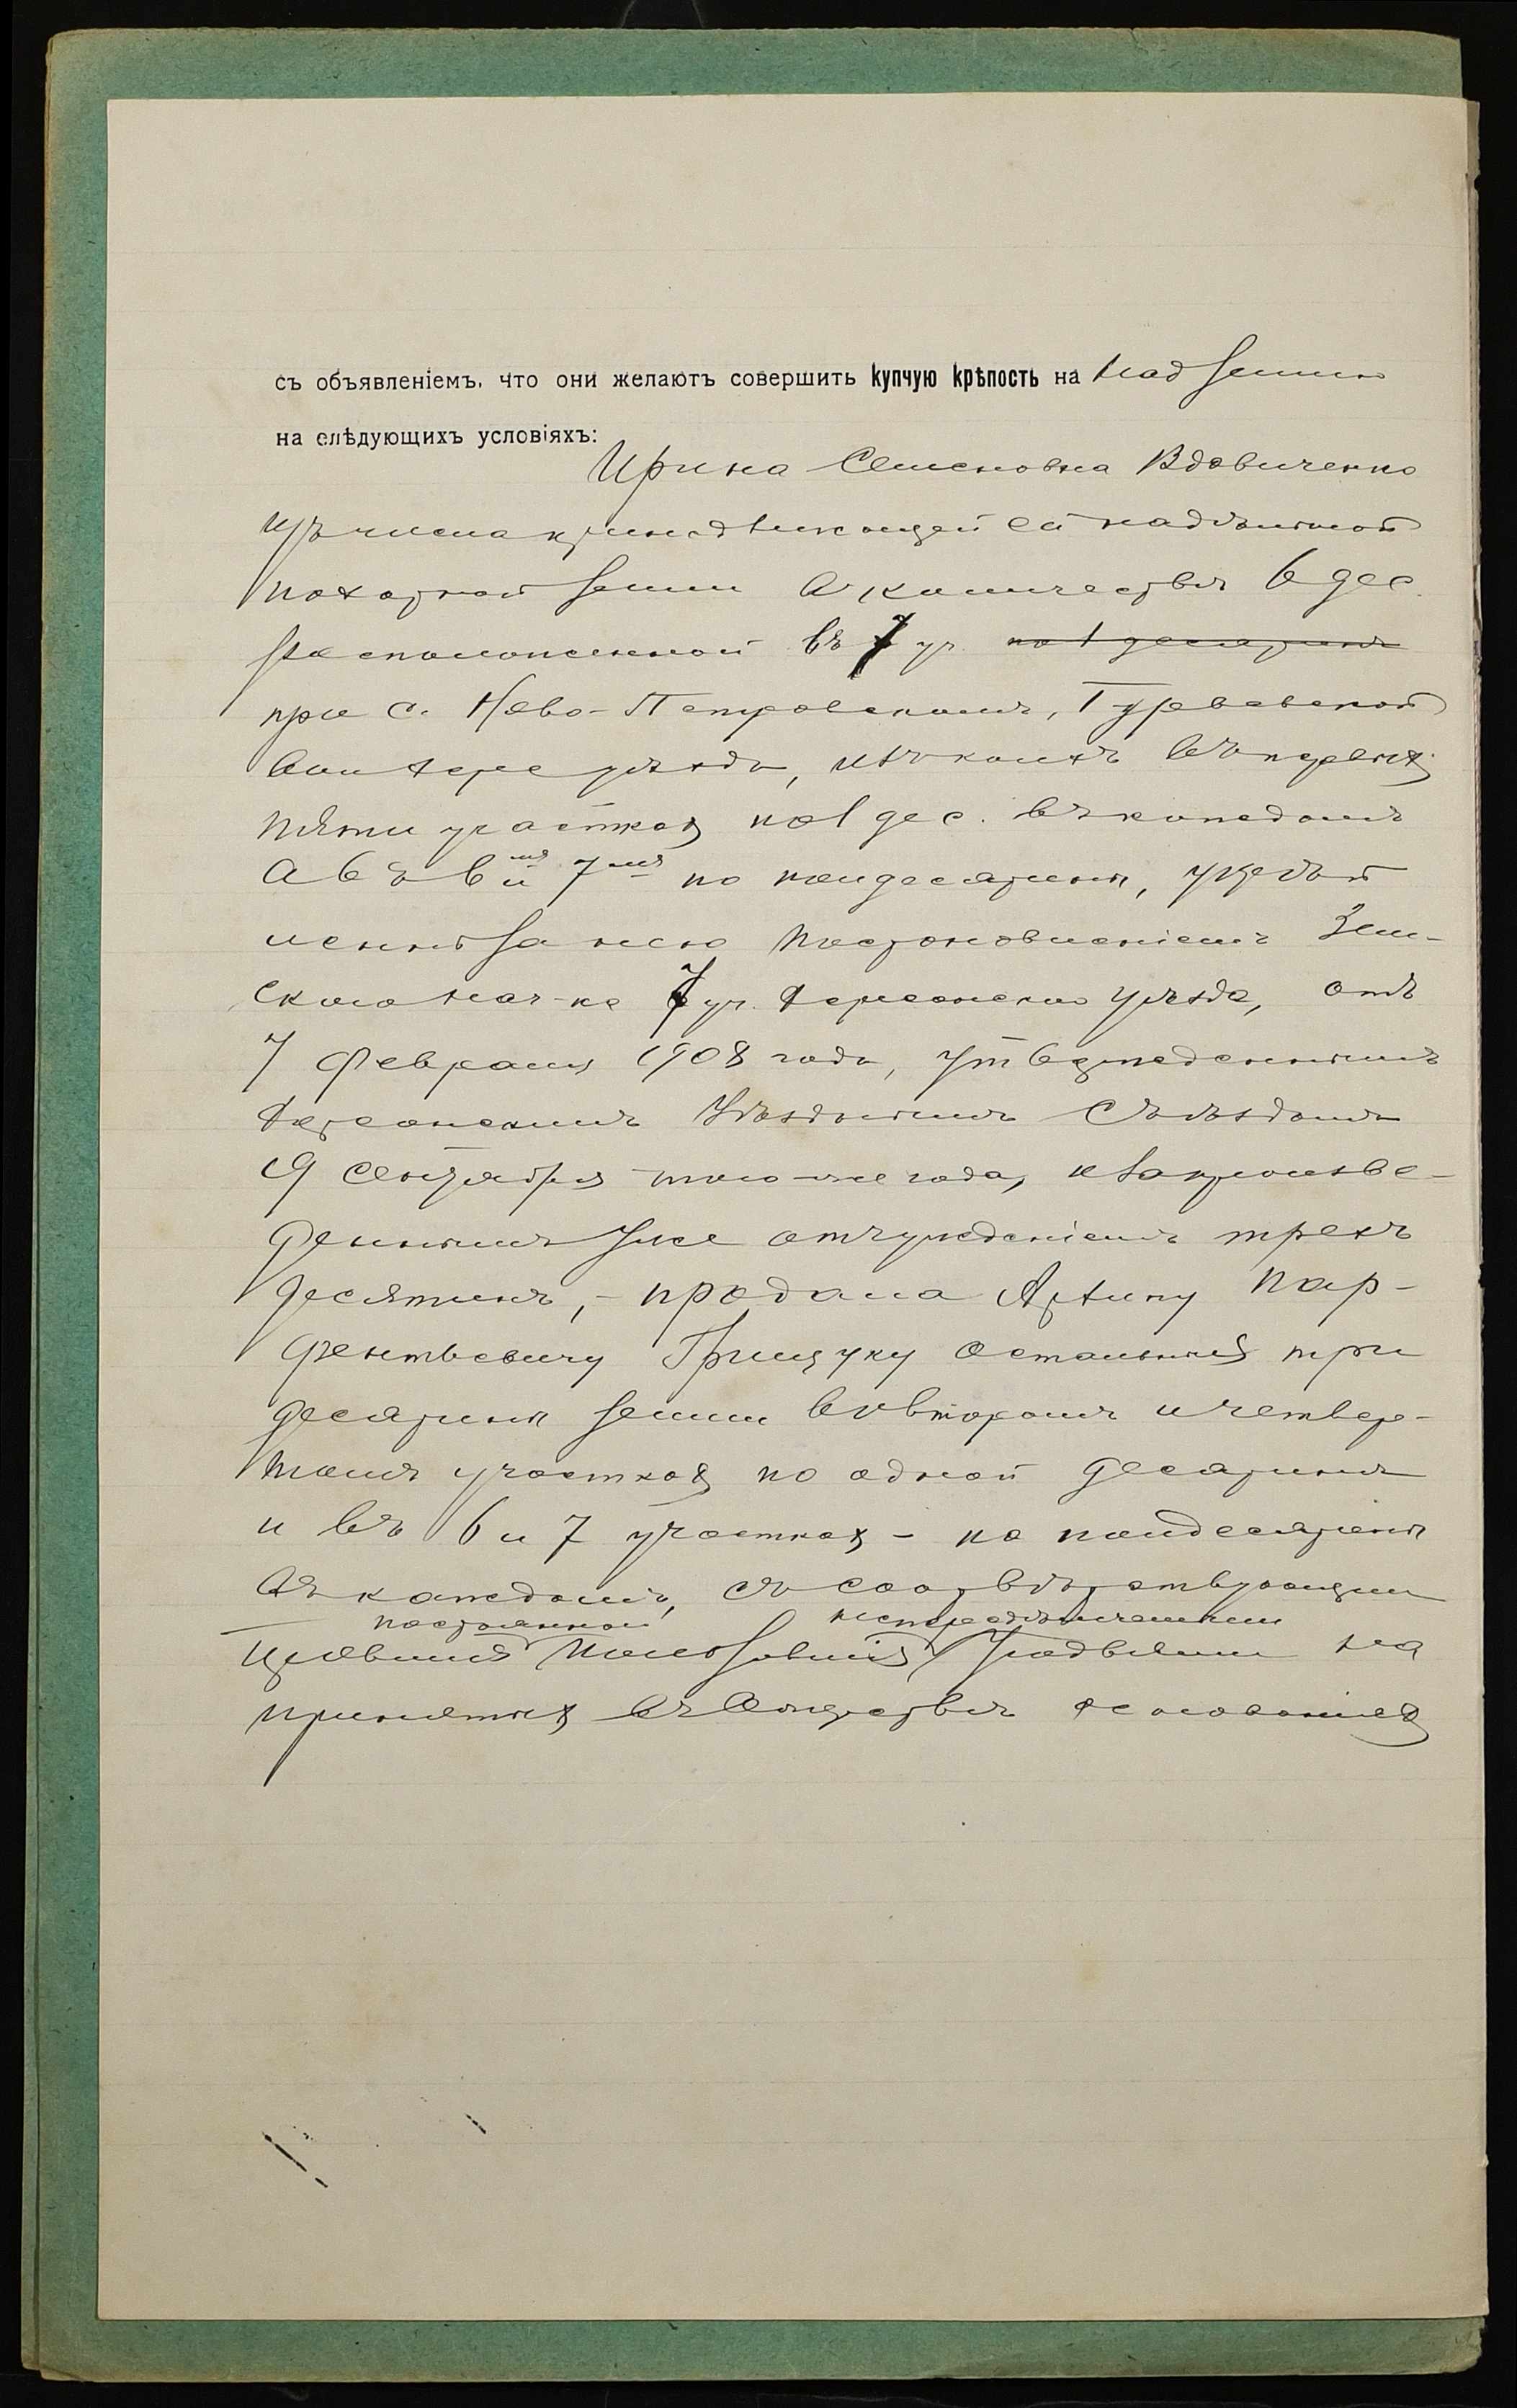 съ объявленіемъ, что они желаютъ совершить купчую крѣпость на над землю
на слѣдующихъ условіяхъ:
Ирина Семеновна Вдовиченко
изъ числа принадлежащей ей надѣльной
пахатной земли въ количествѣ 6 дес.
расположенной въ 7 уч. по 1 десятинѣ
при с. Ново-Петровскомъ, Гуревской
вол Херс уѣзда, въ первыхъ
пяти участках по 1 дес. въ каждомъ
а въ 6 и 7мъ по полдесятины, укрѣп
ленной за нею постановленіемъ Зем-
скаго Нач-ка 7 уч. Херсонскаго уѣзда, отъ
7 Февраля 1908 года, утвержденнымъ
Херсонскимъ Уѣзднымъ Съѣздомъ
19 сентября того-же года, и за произве-
деннымъ уже отчужденіемъ трехъ
десятинъ, - продала Архипу Пар-
фентьевичу Грищуку остальныя три
десятины земли во второмъ и четвер-
томъ участках по одной десятинѣ
и въ 6 и 7 участках - по полдесятины
въ каждомъ, съ соотвѣтствующими
постоянной
угодьями на
принятых въ обществѣ основаніях